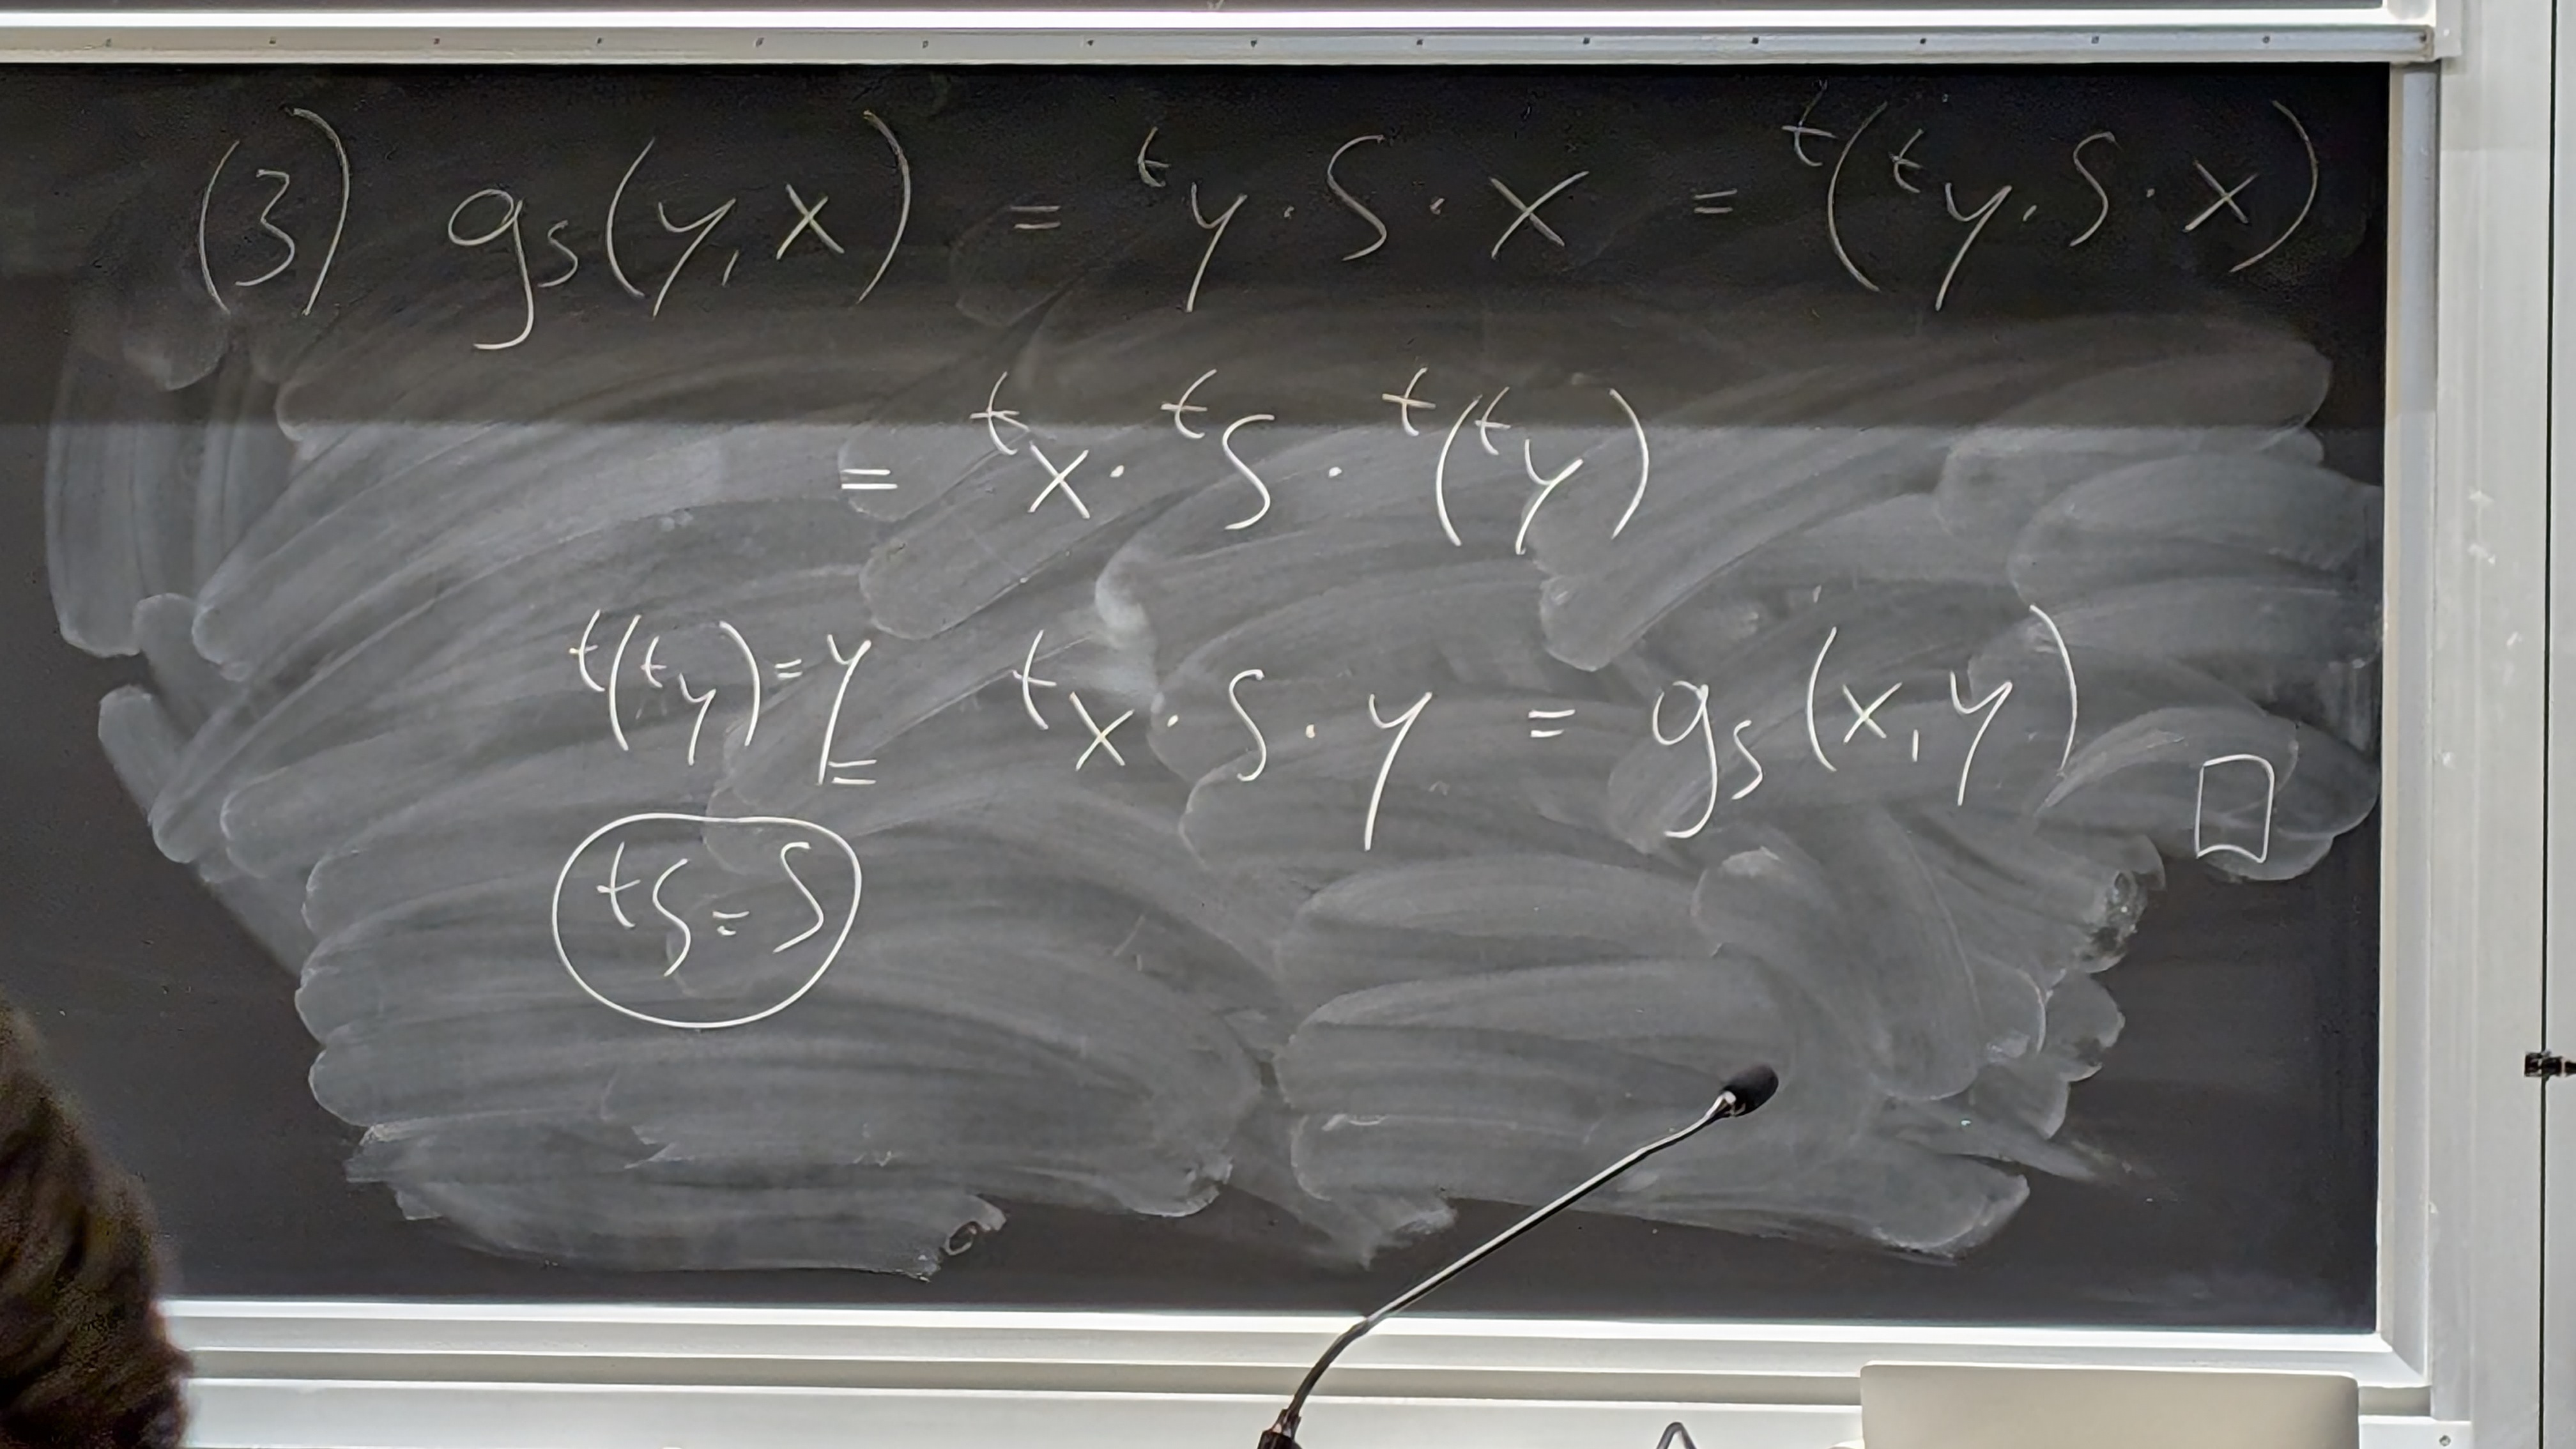 (3) g_S(y,x) = ᵗy · S · x = ᵗ(ᵗy · S · x)
= ᵗx · ᵗS · ᵗ(ᵗy)
ᵗ(ᵗy) = y
= ᵗx · S · y = g_S(x,y) □
ᵗS = S